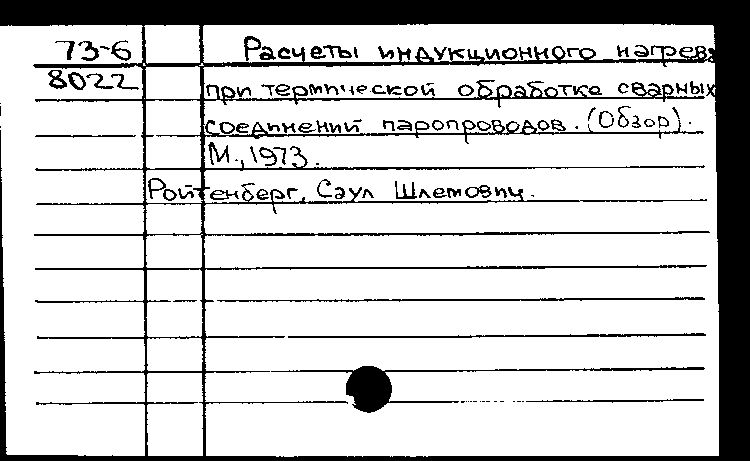 73-6 Расчеты индукционного нагрева
8022 при термической обработке сварных
соединений паропроводов. (Обзор).
М., 1973.
Ройтенберг, Саул Шлемович.